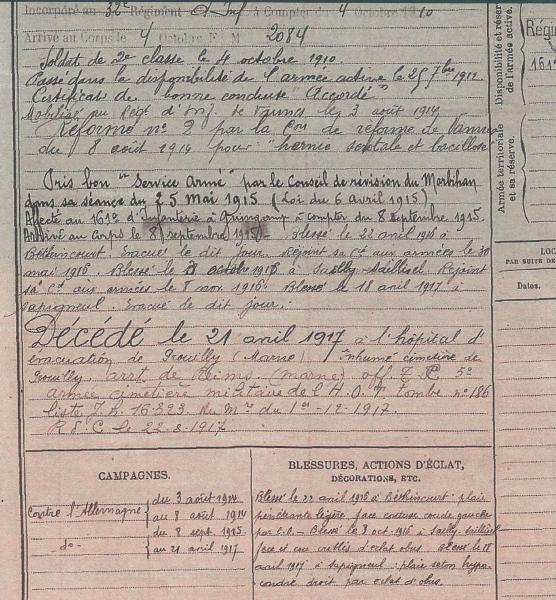 Incorporé au 32e Régiment d'Inf à Compter du 4 Octobre 1910
Arrivé au Corps le 4 Octobre N° M 2084
Soldat de 2e classe le 4 octobre 1910.
Passé dans la disponibilité de l'armée active le 25 7bre 1912
Certificat de bonne conduite "Accordé"
Mobilisé au Régt d'Inf. de le 3 août 1914
Réformé n° 2 par la Con de réforme de Vannes
du 8 août 1914 pour "hernie scrotale et
Pris bon "Service Armé" par le Conseil de révision du Morbihan
dans sa séance du 25 mai 1915 (Loi du 6 avril 1915)
Affecté au 161e d'Infanterie à Guingamp à compter du 8 Septembre 1915.
Arrivé au Corps le 8 septembre 1915. Blessé le 22 avril 1916 à
Béthincourt. Evacué le dit jour. Rejoint sa Cie aux armées le 30
mai 1916. Blessé le octobre 1916 à Sailly-Saillisel. Rejoint
sa Cie aux armées le 8 nov. 1916. Blessé le 18 avril 1917 à
Sapigneul. Evacué le dit jour.
Décédé le 21 avril 1917 à l'hôpital d'
évacuation de Prouilly (Marne). Inhumé cimetière de
Prouilly, arrt de Reims (marne) 5e
armée cimetière militaire de l'H.O.E tombe n° 186
liste 16323 du Mre du 1er-12-1917.
le 22-8-1917
CAMPAGNES.
Contre l'Allemagne
du 3 août 1914
au 8 août 1914
-do-
du 8 sept. 1915
au 21 avril 1917
BLESSURES, ACTIONS D'ÉCLAT,
DÉCORATIONS, ETC.
Blessé le 22 avril 1916 à Béthincourt: plaie
pénétrante légère face coude gauche
par E.O. - Blessé le 8 oct. 1916 à Sailly-Saillisel
face et criblés d'éclat obus. Blessé le 18
avril 1917 à Sapigneul: plaie hypo-
condre droit par éclat d'obus.
Disponibilité et réserve
de l'armée active.
Armée territoriale
et sa réserve.
Régi
161e
LOC
PAR SUITE DE
Dates.